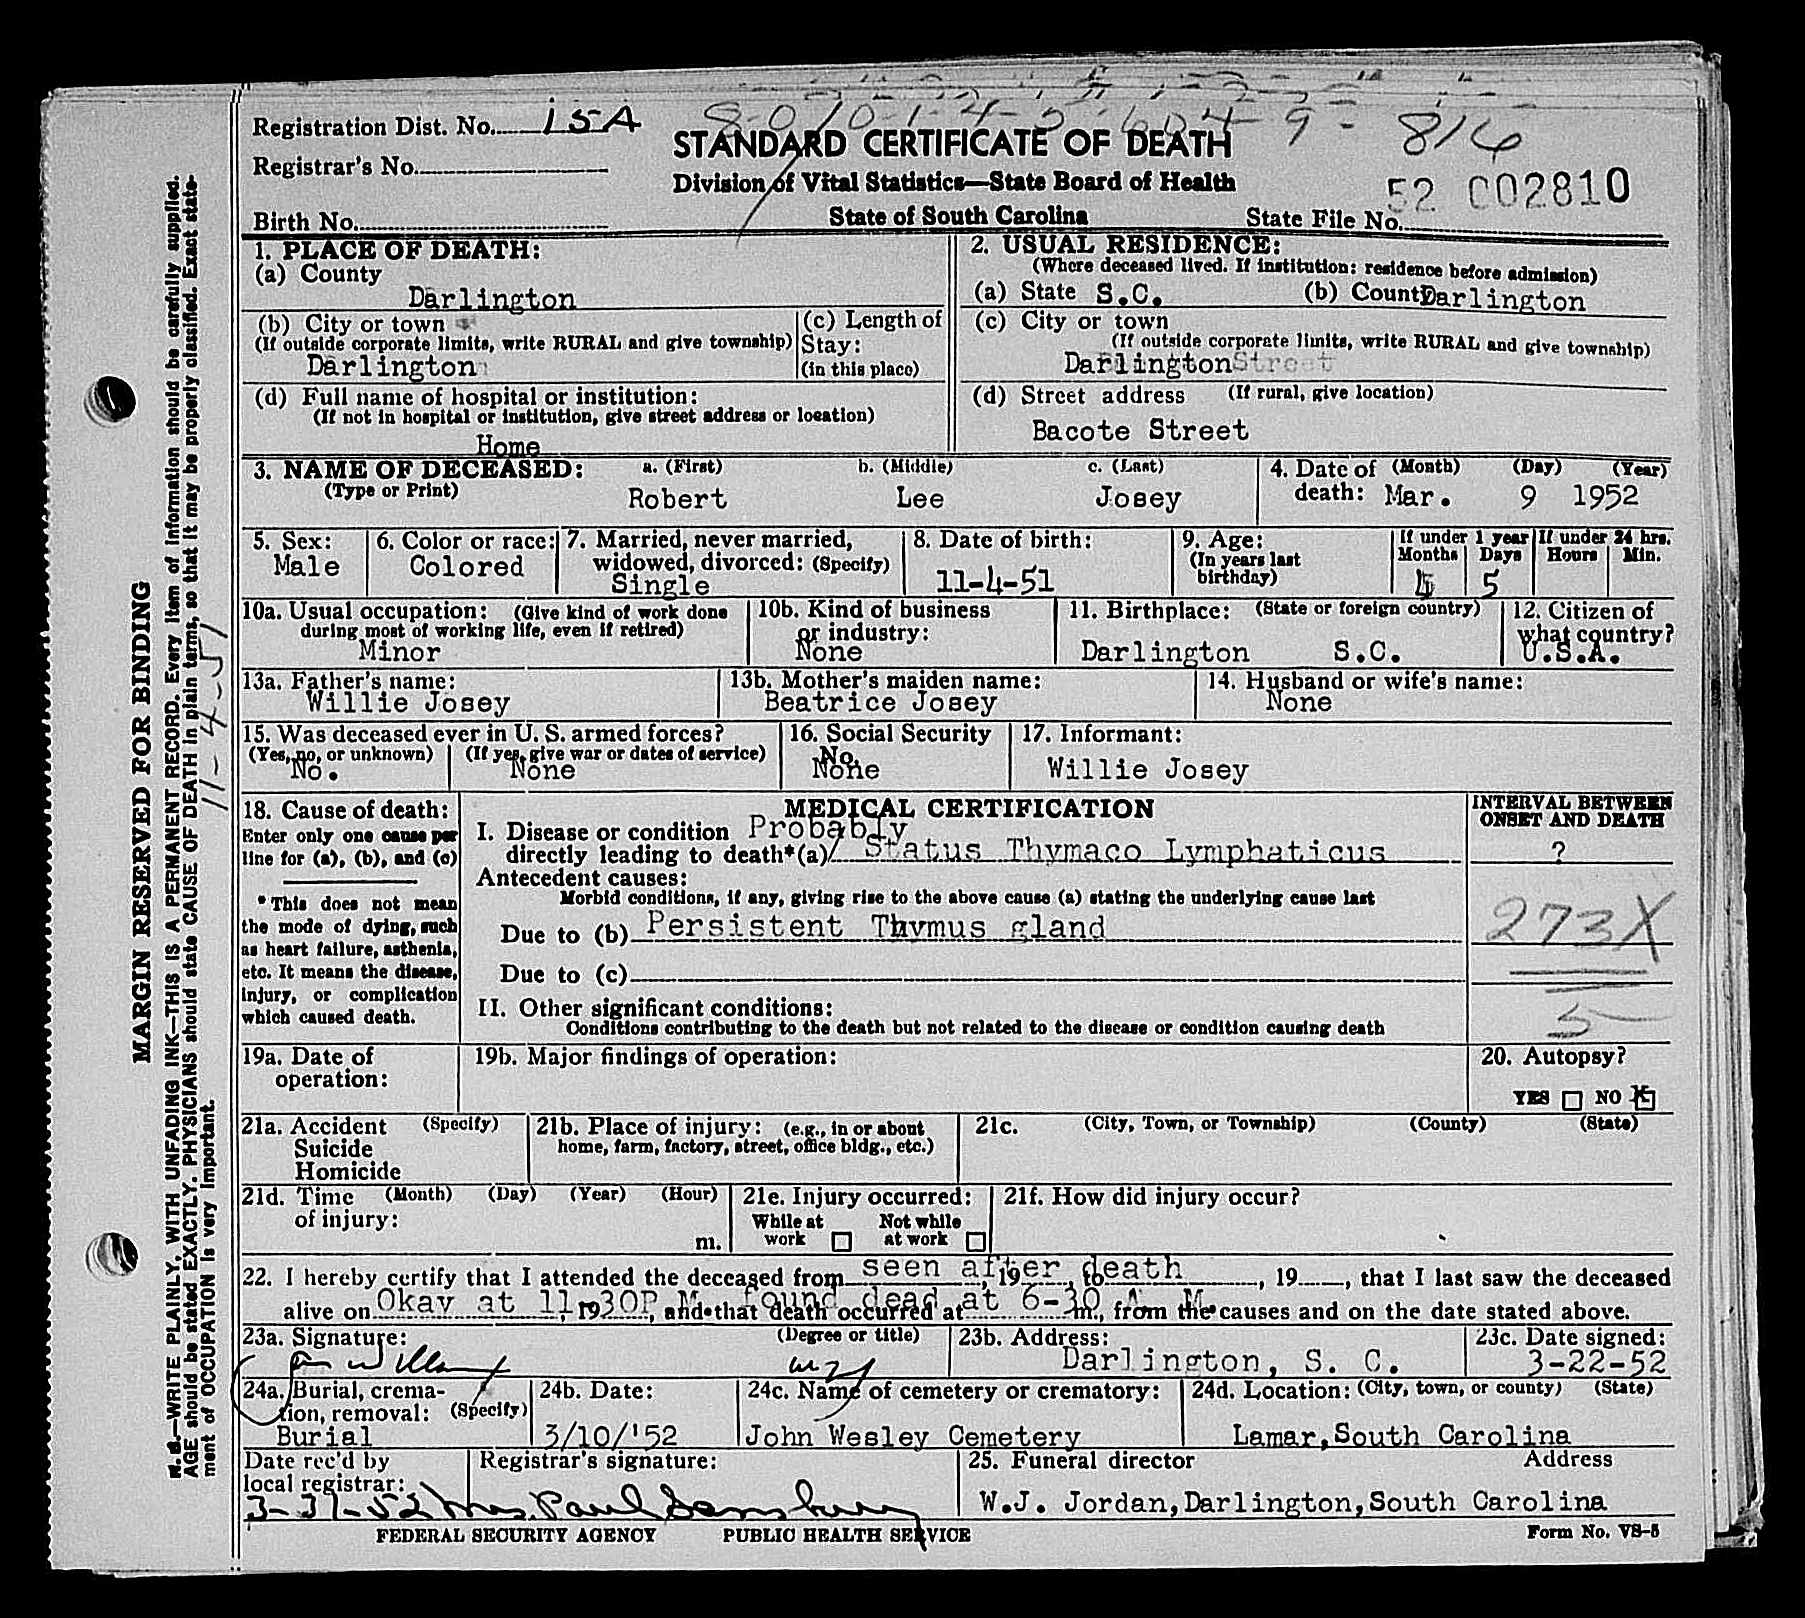 8-070-1-4-5-604-9- 816
Registration Dist. No. 15A
STANDARD CERTIFICATE OF DEATH
Registrar's No.
Division of Vital Statistics—State Board of Health
52 002810
Birth No.
State of South Carolina
State File No.
1. PLACE OF DEATH:
(a) County
Darlington
(b) City or town
(If outside corporate limits, write RURAL and give township)
Darlington
(c) Length of
Stay:
(in this place)
(d) Full name of hospital or institution:
(If not in hospital or institution, give street address or location)
Home
2. USUAL RESIDENCE:
(Where deceased lived. If institution: residence before admission)
(a) State S.C. (b) County Darlington
(c) City or town
(If outside corporate limits, write RURAL and give township)
Darlington Street
(d) Street address (If rural, give location)
Bacote Street
3. NAME OF DECEASED: a. (First) b. (Middle) c. (Last)
(Type or Print) Robert Lee Josey
4. Date of (Month) (Day) (Year)
death: Mar. 9 1952
5. Sex:
Male
6. Color or race:
Colored
7. Married, never married,
widowed, divorced: (Specify)
Single
8. Date of birth:
11-4-51
9. Age:
(In years last
birthday)
If under 1 year
Months Days
4 5
If under 24 hrs.
Hours Min.
10a. Usual occupation: (Give kind of work done
during most of working life, even if retired)
Minor
10b. Kind of business
or industry:
None
11. Birthplace: (State or foreign country)
Darlington S.C.
12. Citizen of
what country?
U.S.A.
13a. Father's name:
Willie Josey
13b. Mother's maiden name:
Beatrice Josey
14. Husband or wife's name:
None
15. Was deceased ever in U. S. armed forces?
(Yes, no, or unknown) (If yes, give war or dates of service)
No. None
16. Social Security
No.
None
17. Informant:
Willie Josey
18. Cause of death:
Enter only one cause per
line for (a), (b), and (c)
*This does not mean
the mode of dying, such
as heart failure, asthenia,
etc. It means the disease,
injury, or complication
which caused death.
MEDICAL CERTIFICATION
I. Disease or condition Probably
directly leading to death*(a) Status Thymaco Lymphaticus
Antecedent causes:
Morbid conditions, if any, giving rise to the above cause (a) stating the underlying cause last
Due to (b) Persistent Thymus gland
Due to (c)
II. Other significant conditions:
Conditions contributing to the death but not related to the disease or condition causing death
INTERVAL BETWEEN
ONSET AND DEATH
?
273X
5
19a. Date of
operation:
19b. Major findings of operation:
20. Autopsy?
YES NO X
21a. Accident (Specify)
Suicide
Homicide
21b. Place of injury: (e.g., in or about
home, farm, factory, street, office bldg., etc.)
21c. (City, Town, or Township) (County) (State)
21d. Time (Month) (Day) (Year) (Hour)
of injury:
m.
21e. Injury occurred:
While at Not while
work at work
21f. How did injury occur?
22. I hereby certify that I attended the deceased from seen after death, 19, to, 19, that I last saw the deceased
alive on Okay at 11,30P M. found dead at 6-30 A. M., 19, and that death occurred at m., from the causes and on the date stated above.
23a. Signature: (Degree or title)
23b. Address:
Darlington, S. C.
23c. Date signed:
3-22-52
24a. Burial, crema-
tion, removal: (Specify)
Burial
24b. Date:
3/10/'52
24c. Name of cemetery or crematory:
John Wesley Cemetery
24d. Location: (City, town, or county) (State)
Lamar, South Carolina
Date rec'd by
local registrar:
3-31-52
Registrar's signature:
Mrs. Paul Sansbury
25. Funeral director Address
W.J. Jordan, Darlington, South Carolina
FEDERAL SECURITY AGENCY PUBLIC HEALTH SERVICE
Form No. VS-5
MARGIN RESERVED FOR BINDING
N. B.—WRITE PLAINLY, WITH UNFADING INK—THIS IS A PERMANENT RECORD. Every item of information should be carefully supplied.
AGE should be stated EXACTLY. PHYSICIANS should state CAUSE OF DEATH in plain terms, so that it may be properly classified. Exact state-
ment of OCCUPATION is very important.
11-4-51